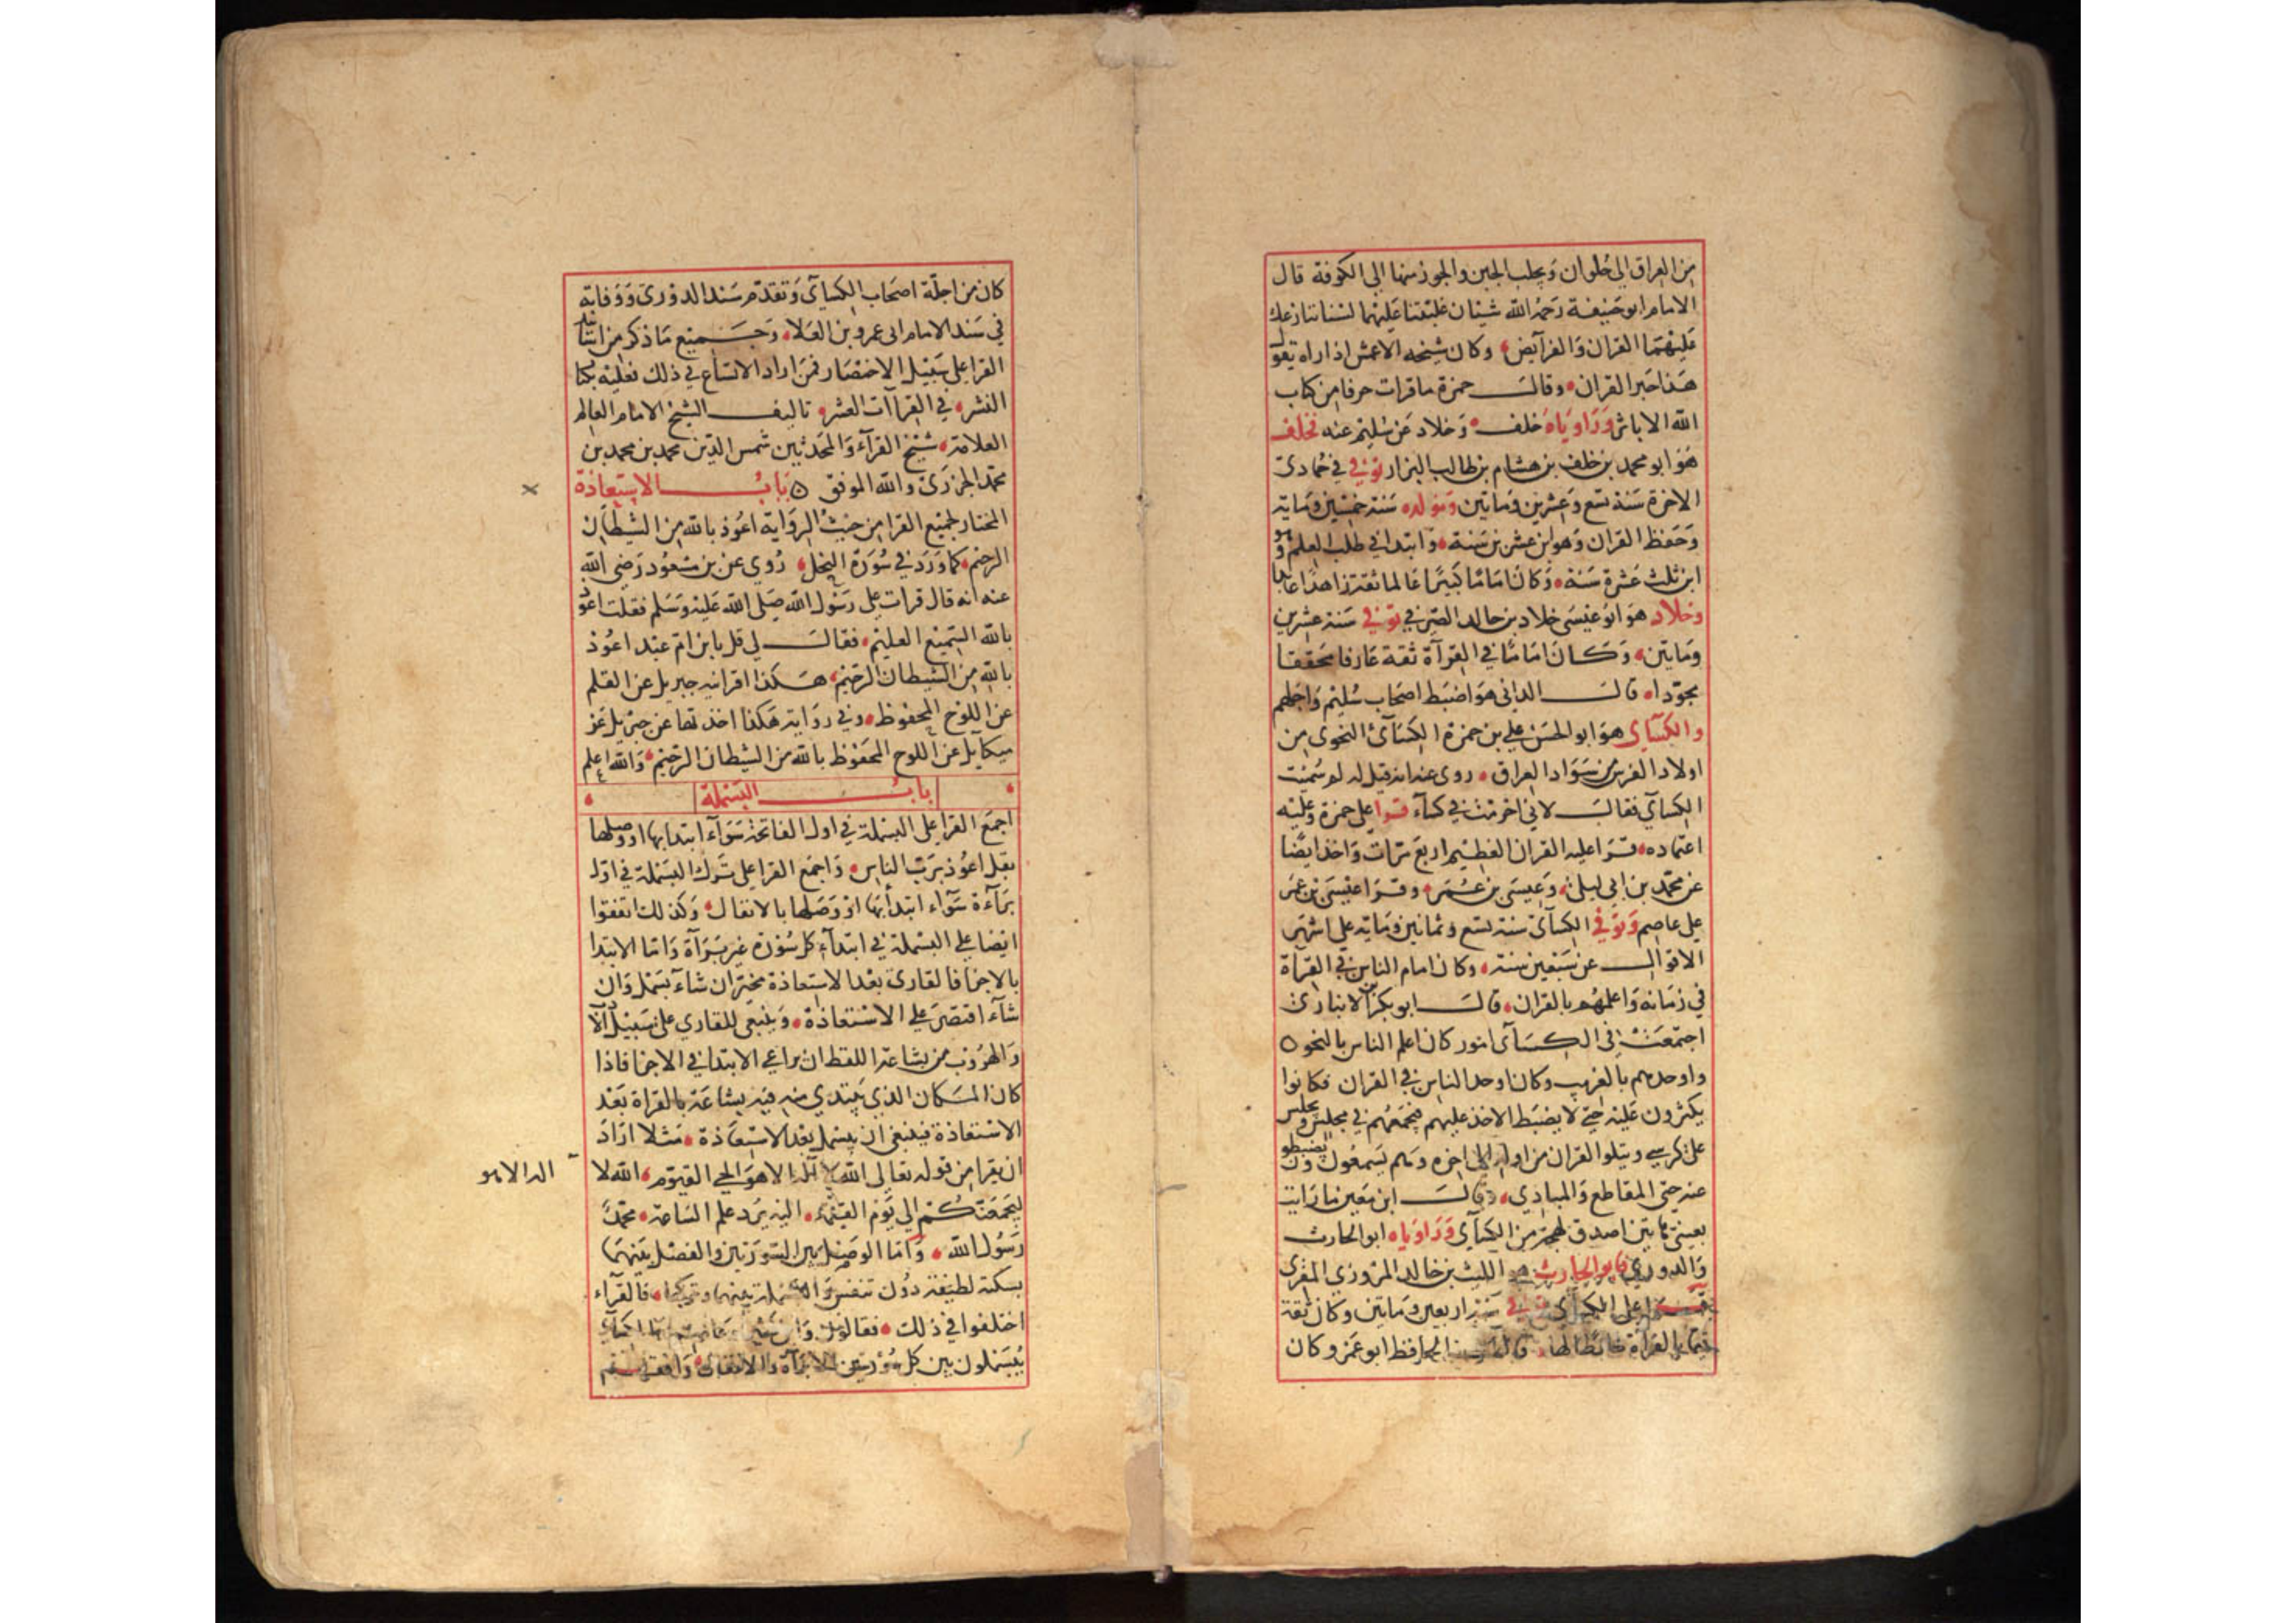 من العراق الي حلوان ويجلب الجبن والجوز منها الي الكوفة قال
الامام ابو حنيفة رحمه الله شيئان غلبتنا عليهما لسنا ننازعك
عليهما القران والفرآيض وكان شيخه الاعمش اذا راه يقول
هذا حبر القران وقال حمزة ما قرات حرفا من كتاب
الله الا باثر وراوياه خلف وخلاد عن سليم عنه فخلف
هو ابو محمد بن خلف بن هشام بن طالب البزار توفي في جمادي
الاخرة سنة تسع وعشرين وماتين ومولده سنة خمسين وماية
وحفظ القران وهو ابن عشر سنة وابتدا في طلب العلم وهو
ابن ثلث عشرة سنة وكان اماما كبيرا عالما ثقة زاهدا عابدا
وخلاد هو ابو عيسي خلاد بن خالد الصيرفي توفي سنة عشرين
وماتين وكان اماما في القرآة ثقة عارفا محققا
مجودا قال الداني هو اضبط اصحاب سليم واجلهم
والكسآي هو ابو الحسن علي بن حمزة الكسآئ النحوي من
اولاد الفرس من سواد العراق روي عنه انه قيل له لم سميت
الكسآي فقال لاني احرمت في كسآء قرا علي حمزة وعليه
اعتماده قرا عليه القران العظيم اربع مرات واخذ ايضا
عن محمد بن ابي ليلي وعيسي بن عمر وقرا عيسي بن عمر
علي عاصم وتوفي الكسآئ سنة تسع وثمانين وماية علي اشهر
الاقوال عن سبعين سنة وكان امام الناس في القرآة
في زمانه واعلمهم بالقران قال ابو بكر بن الانباري
اجتمعت في الكسآئ امور كان اعلم الناس بالنحو
واوحدهم بالغريب وكان اوحد الناس في القران فكانوا
يكثرون عليه حتي لا يضبط الاخذ عليهم فيجمعهم في مجلس ويجلس
علي كرسي ويتلوا القران من اوله الي اخره وهم يسمعون ويضبطون
عنه حتي المقاطع والمبادي وقال ابن معين ما رايت
بعيني هاتين اصدق لهجة من الكسآي وراوياه ابو الحارث
والدوري فابو الحارث هو الليث بن خالد المروزي المقري
قرا علي الكسآي توفي سنة اربعين وماتين وكان ثقة
قيما بالقراة ضابطا لها قال الحافظ ابو عمرو كان
كان من اجلة اصحاب الكسآئ وتقدم سند الدوري ووفاته
في سند الامام ابي عمرو بن العلا وجميع ما ذكر من اسانيد
القرا علي سبيل الاختصار فمن اراد الاتساع في ذلك فعليه بكتاب
النشر في القراآت العشر تاليف الشيخ الامام العالم
العلامة شيخ القرآء والمحدثين شمس الدين محمد بن محمد بن
محمد الجزري والله الموفق باب الاستعاذة
المختار لجميع القرا من حيث الرواية اعوذ بالله من الشيطان
الرجيم كما ورد في سورة النحل روي عن بن مسعود رضي الله
عنه انه قال قرات علي رسول الله صلي الله عليه وسلم فقلت اعوذ
بالله السميع العليم فقال لي قل يا بن ام عبد اعوذ
بالله من الشيطان الرجيم هكذا اقرانيه جبريل عن القلم
عن اللوح المحفوظ وفي رواية هكذا اخذتها عن جبريل عن
ميكآيل عن اللوح المحفوظ بالله من الشيطان الرجيم والله اعلم
باب البسملة
اجمع القرا علي البسملة في اول الفاتحة سوآء ابتدا بها او وصلها
بقل اعوذ برب الناس واجمع القرا علي ترك البسملة في اول
برآءة سوآء ابتدأ بها او وصلها بالانفال وكذلك اتفقوا
ايضا علي البسملة في ابتدآء كل سورة غير برآة واما الابتدا
بالاجزا فالقاري بعد الاستعاذة مخير ان شآء بسمل وان
شآء اقتصر علي الاستعاذة وينبغي للقاري علي سبيل
والهروب من بشاعة اللفظ ان يراعي الابتدا في الاجزا فاذا
كان المكان الذي يبتدي منه فيه بشاعة بالقراة بعد
الاستعاذة فينبغي ان يبسمل بعد الاستعاذة مثلا اراد
ان يقرا من قوله تعالي الله لا اله الا هو الحي القيوم الله لا
اله الا هو
ليجمعنكم الي يوم القيمة اليه يرد علم الساعة محمد
رسول الله واما الوصل بين السورتين والفصل بينهما
بسكتة لطيفة دون تنفس والبسملة بينهما وتركها فالقرآء
اختلفوا في ذلك فقالون وابن كثير وعاصم والكسآي
يبسملون بين كل سورتين الا برآة والانفال وافقهم